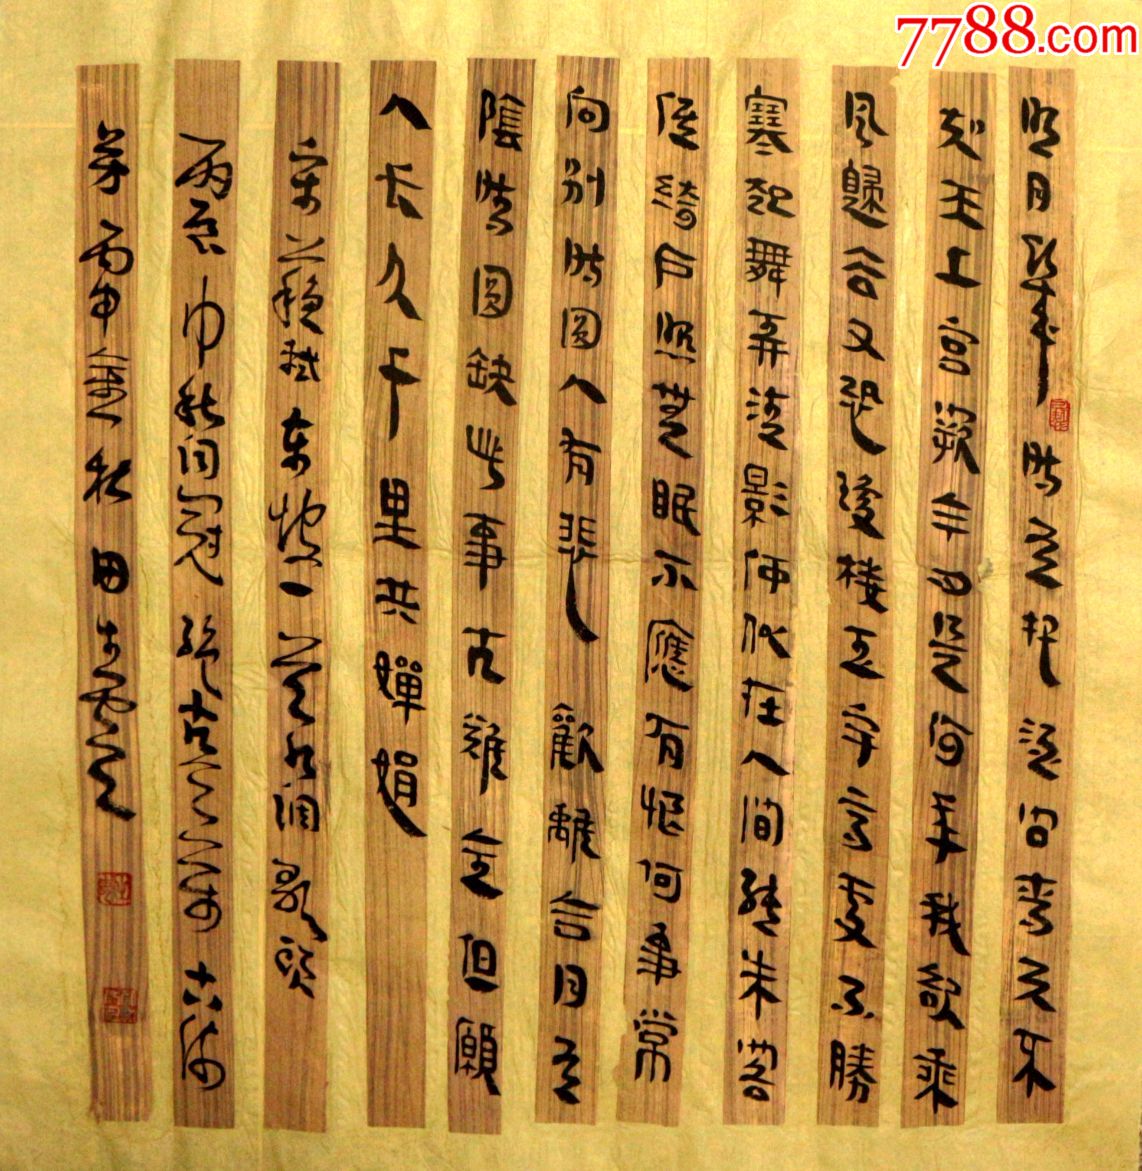 7788.com
明月幾時有把酒問青天不
知天上宮闕今夕是何年我欲乘
風歸去又恐瓊樓玉宇高處不勝
寒起舞弄清影何似在人間轉朱閣
低綺戶照無眠不應有恨何事常
向別時圓人有悲歡離合月有
陰晴圓缺此事古難全但願
人長久千里共嬋娟
宋蘇軾東坡一首水調歌頭
丙辰中秋冠絕古今
丙申秋田